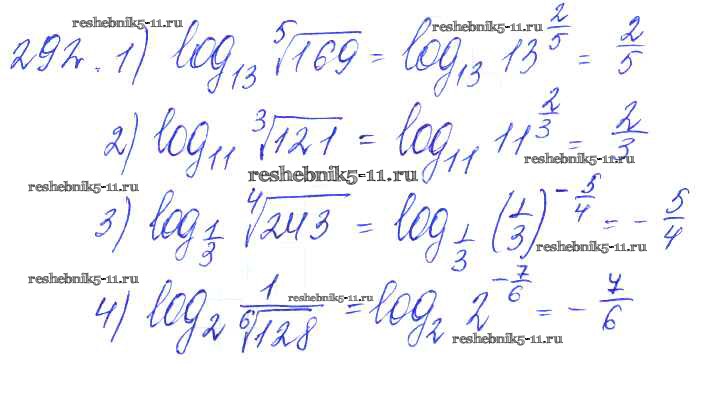 reshebnik5-11.ru reshebnik5-11.ru
292. 1) log₁₃ ⁵√169 = log₁₃ 13^(2/5) = 2/5
2) log₁₁ ³√121 = log₁₁ 11^(2/3) = 2/3
reshebnik5-11.ru
reshebnik5-11.ru
3) log_(1/3) ⁴√243 = log_(1/3) (1/3)^(-5/4) = - 5/4
reshebnik5-11.ru
reshebnik5-11.ru reshebnik5-11.ru
4) log₂ 1/⁶√128 = log₂ 2^(-7/6) = - 7/6
reshebnik5-11.ru